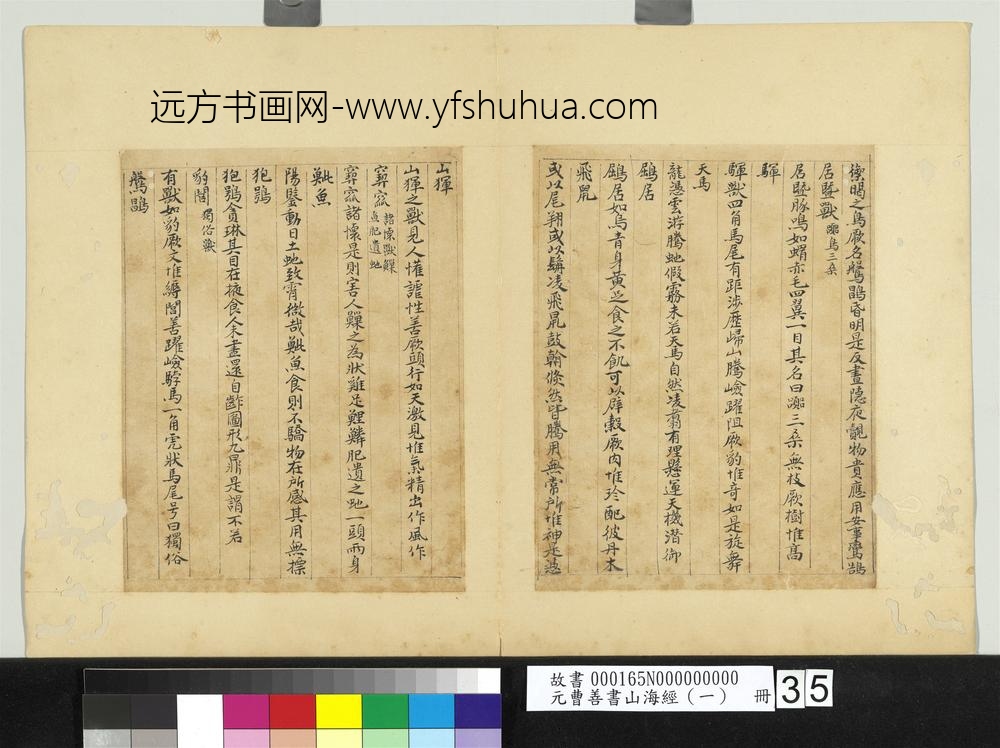 远方书画网-www.yfshuhua.com
禦暍之鳥厥名鷩鶥昏明是反晝隐夜覿物貴應用安事鸞鵠
居暨獸 鳥三桑
居暨豚鳴如蝟赤毛四翼一目其名曰三桑無枝厥樹惟高
䮝
䮝獸四角馬尾有距涉歷歸山騰嶮躍阻厥豹惟奇如是旋舞
天馬
龍憑雲游騰虵假霧未若天馬自然凌翥有理懸運天機潜御
鶌居
鶌居如烏青身黄足食之不飢可以辟穀厥肉惟珍配彼丹木
飛鼠
或以尾翔或以髯凌飛鼠鼓翰倏然皆騰用無常所惟神是憑
山㺍
山㺍之獸見人懽謔性善厥頭行如天激見惟氣精出作風作
窫窳 諸懷獸鱳魚肥遺虵
窫窳諸懷是則害人鱳之為狀雞足鯉鱗肥遺之虵一頭兩身
鮆魚
陽鑒動日土虵致霄微哉鮆魚食則不驕物在所感其用無標
狍鴞
狍鴞貪惏其目在掖食人未盡還自齘圖形九鼎是謂不若
豹閭 獨俗獸
有獸如豹厥文惟縟閭善躍嶮駮馬一角虎狀馬尾号曰獨俗
鷩鶥
故書 000165N000000000
元曹善書山海經(一) 冊 35